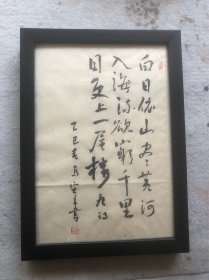 白日依山尽黄河
入海流欲窮千里
目更上一层楼
乙巳
书